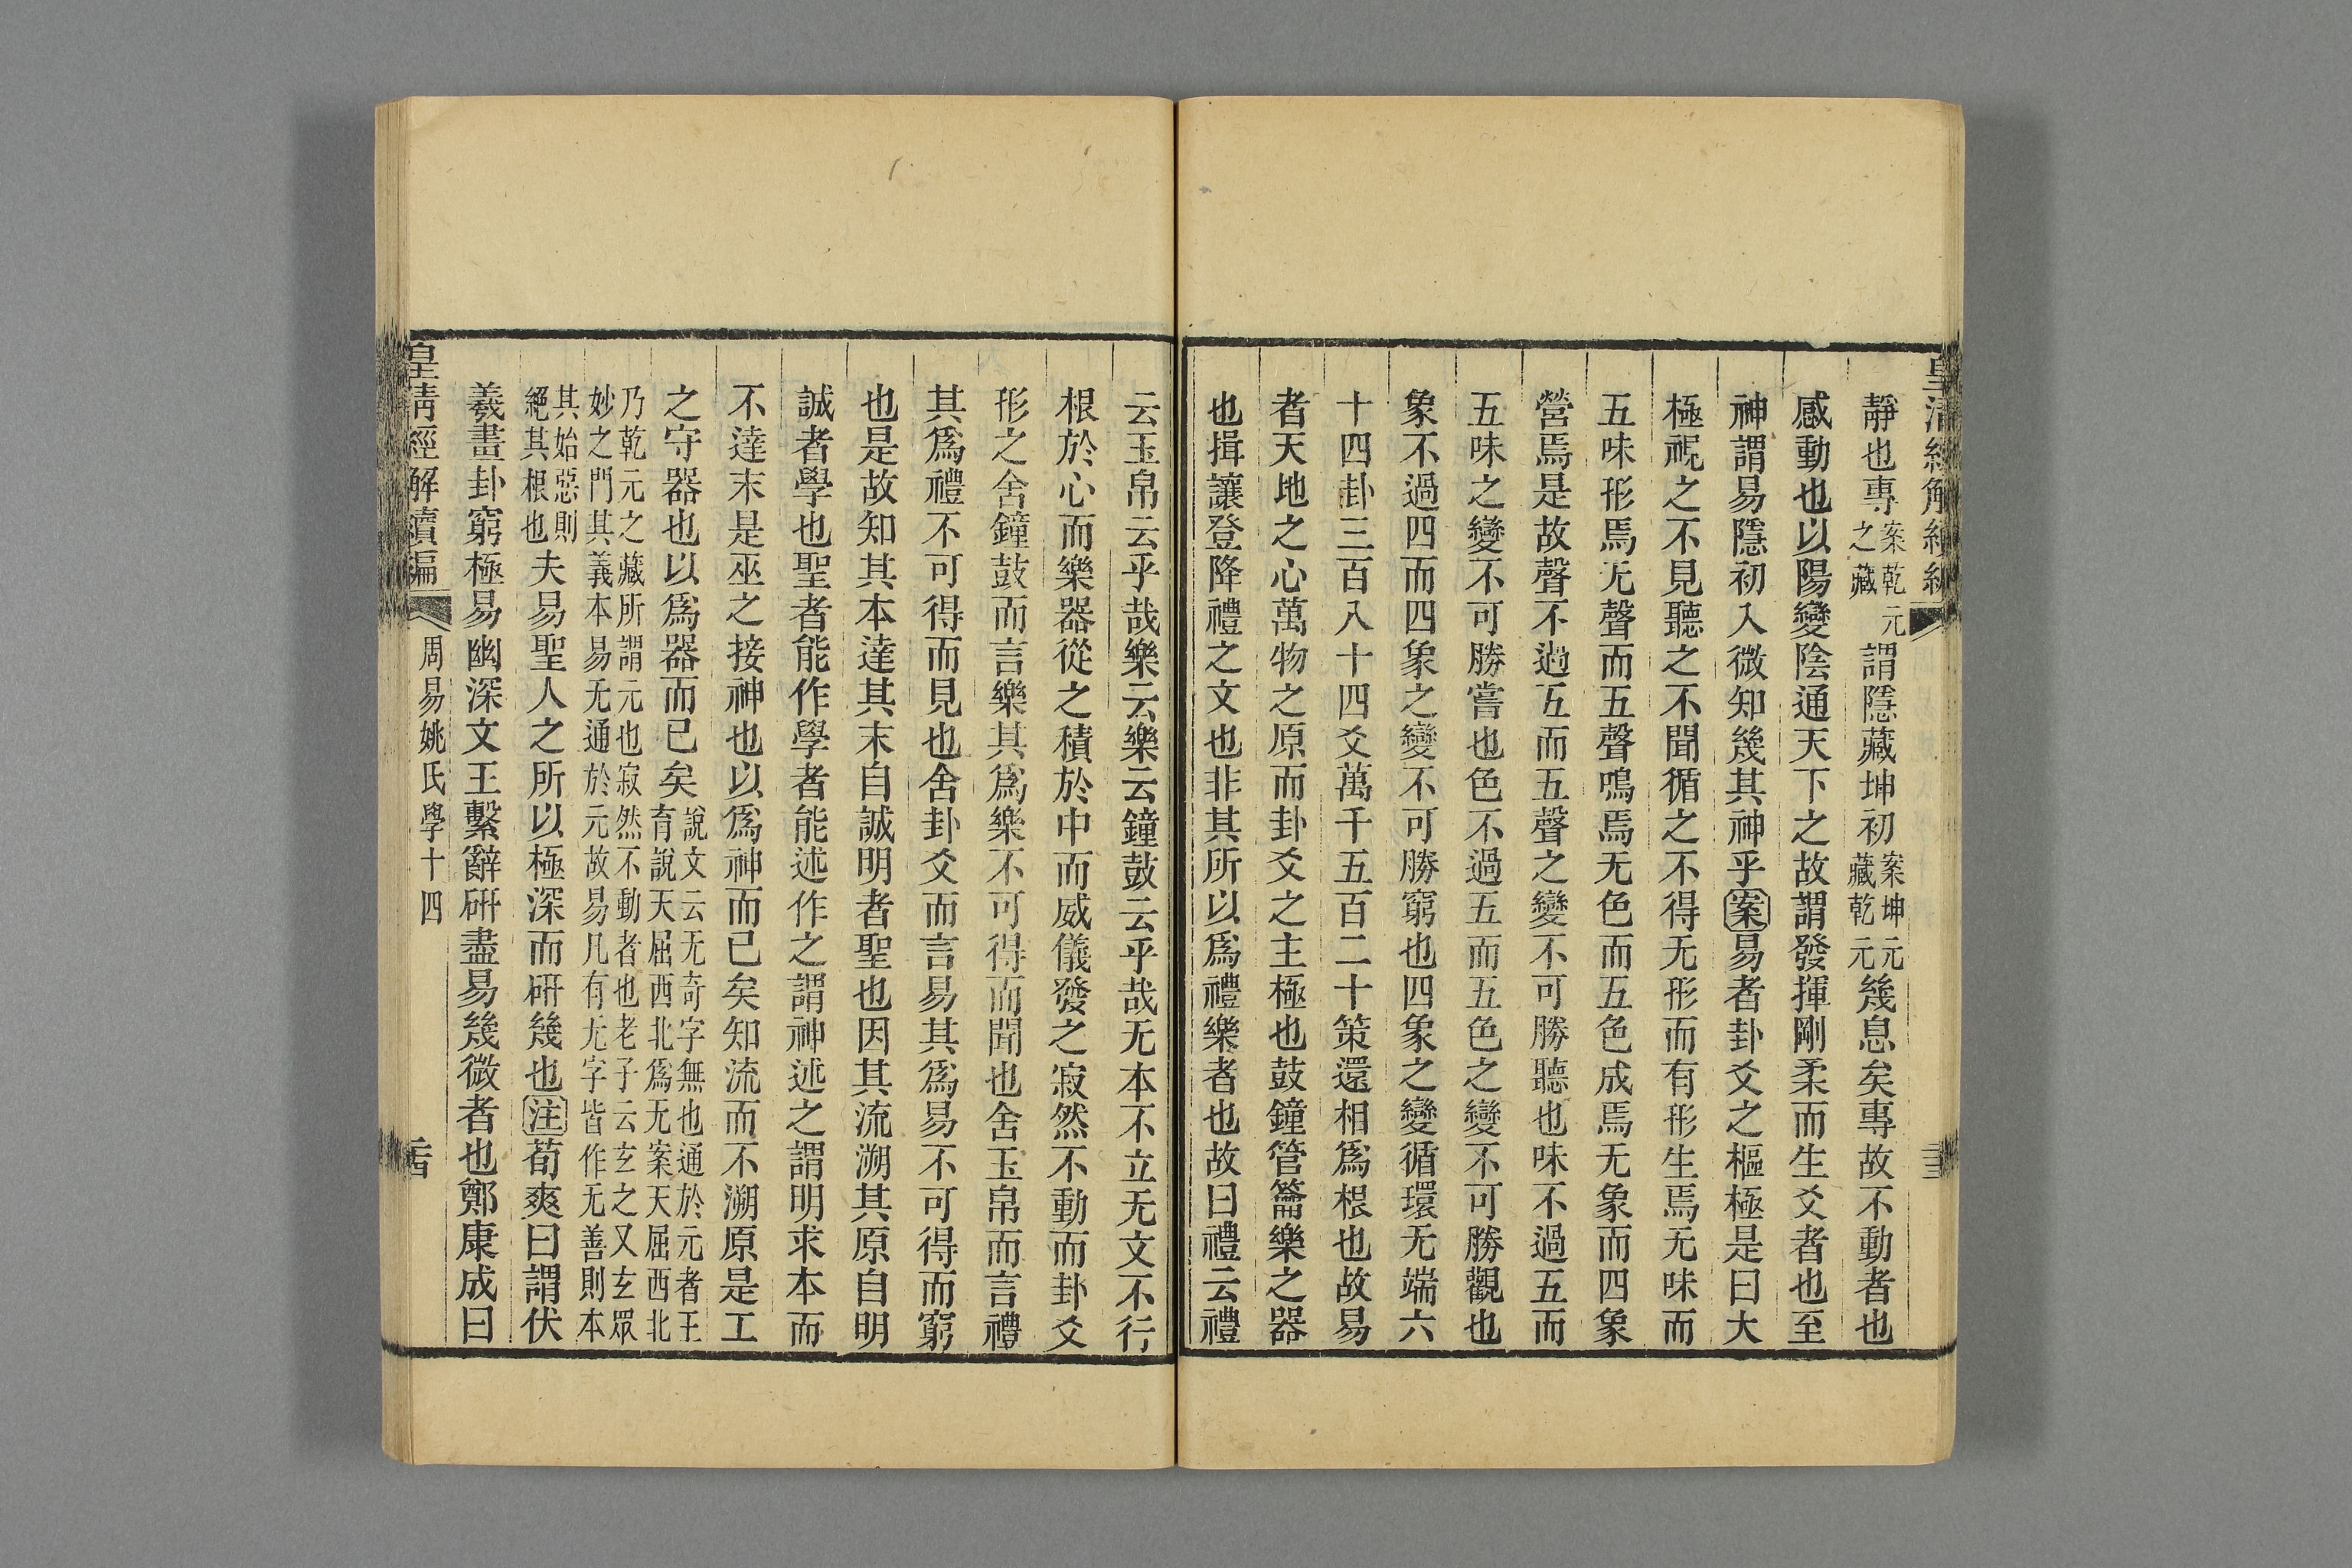 皇清經解續編
靜也專案乾元之藏謂隱藏坤初案坤元藏乾元幾息矣專故不動者也
感動也以陽變陰通天下之故謂發揮剛柔而生爻者也至
神謂易隱初入微知幾其神乎案易者卦爻之樞極是曰大
極視之不見聽之不聞循之不得无形而有形生焉无味而
五味形焉无聲而五聲鳴焉无色而五色成焉无象而四象
營焉是故聲不過五而五聲之變不可勝聽也味不過五而
五味之變不可勝嘗也色不過五而五色之變不可勝觀也
象不過四而四象之變不可勝窮也四象之變循環无端六
十四卦三百八十四爻萬千五百二十策還相爲根也故易
者天地之心萬物之原而卦爻之主極也鼓鐘管籥樂之器
也揖讓登降禮之文也非其所以爲禮樂者也故曰禮云禮
云玉帛云乎哉樂云樂云鐘鼓云乎哉无本不立无文不行
根於心而樂器從之積於中而威儀發之寂然不動而卦爻
形之舍鐘鼓而言樂其爲樂不可得而聞也舍玉帛而言禮
其爲禮不可得而見也舍卦爻而言易其爲易不可得而窮
也是故知其本達其末自誠明者聖也因其流溯其原自明
誠者學也聖者能作學者能述作之謂神述之謂明求本而
不達末是巫之接神也以爲神而已矣知流而不溯原是工
之守器也以爲器而已矣說文云无奇字無也通於元者王育說天屈西北爲无案天屈西北
乃乾元之藏所謂元也寂然不動者也老子云玄之又玄眾妙之門其義本易无通於元故易凡有无字皆作无善則本
其始惡則絕其根也夫易聖人之所以極深而硏幾也注荀爽曰謂伏
羲畫卦窮極易幽深文王繫辭硏盡易幾微者也鄭康成曰
皇清經解續編
周易姚氏學十四